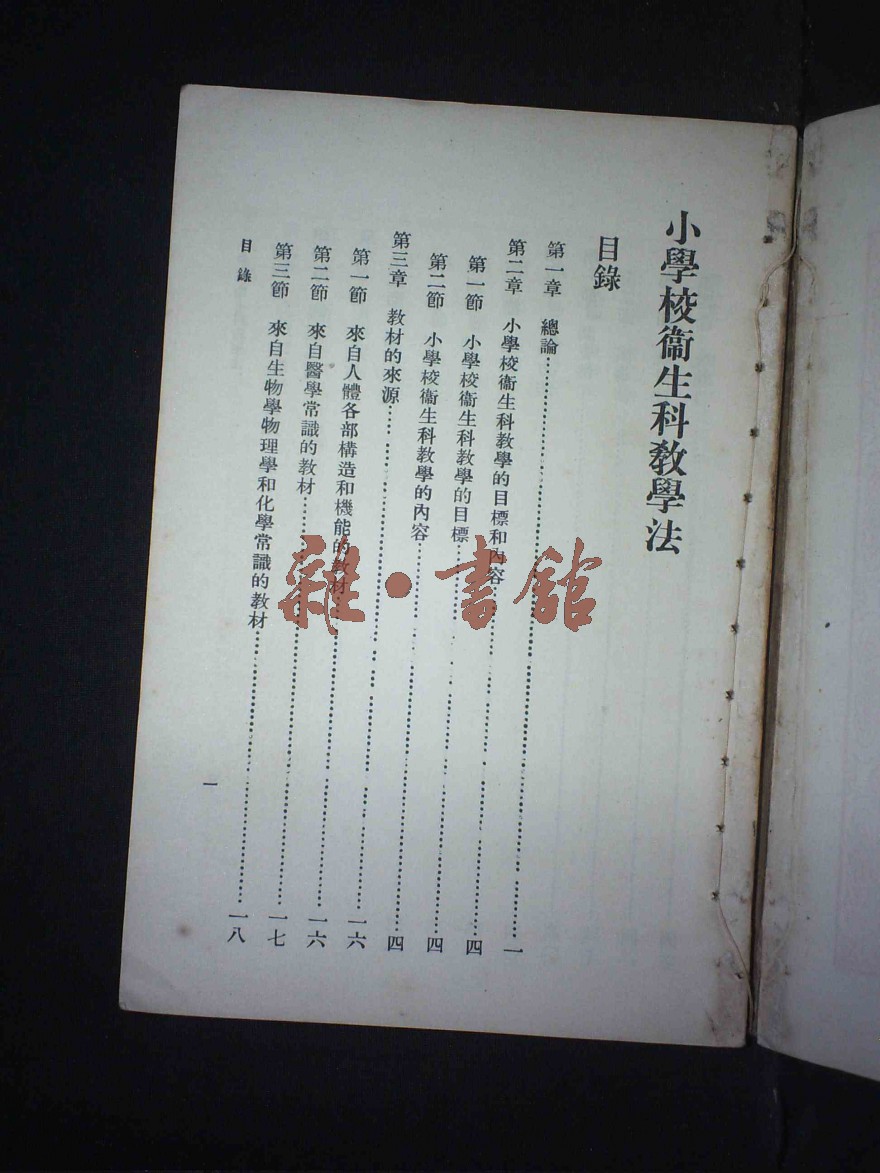 小學校衞生科敎學法
目錄
第一章 總論……一
第二章 小學校衞生科教學的目標和內容……四
第一節 小學校衞生科教學的目標……四
第二節 小學校衞生科教學的內容……四
第三章 教材的來源……一六
第一節 來自人體各部構造和機能的教材……一六
第二節 來自醫學常識的教材……一七
第三節 來自生物學物理學和化學常識的教材……一八
目錄
一
雜·書館